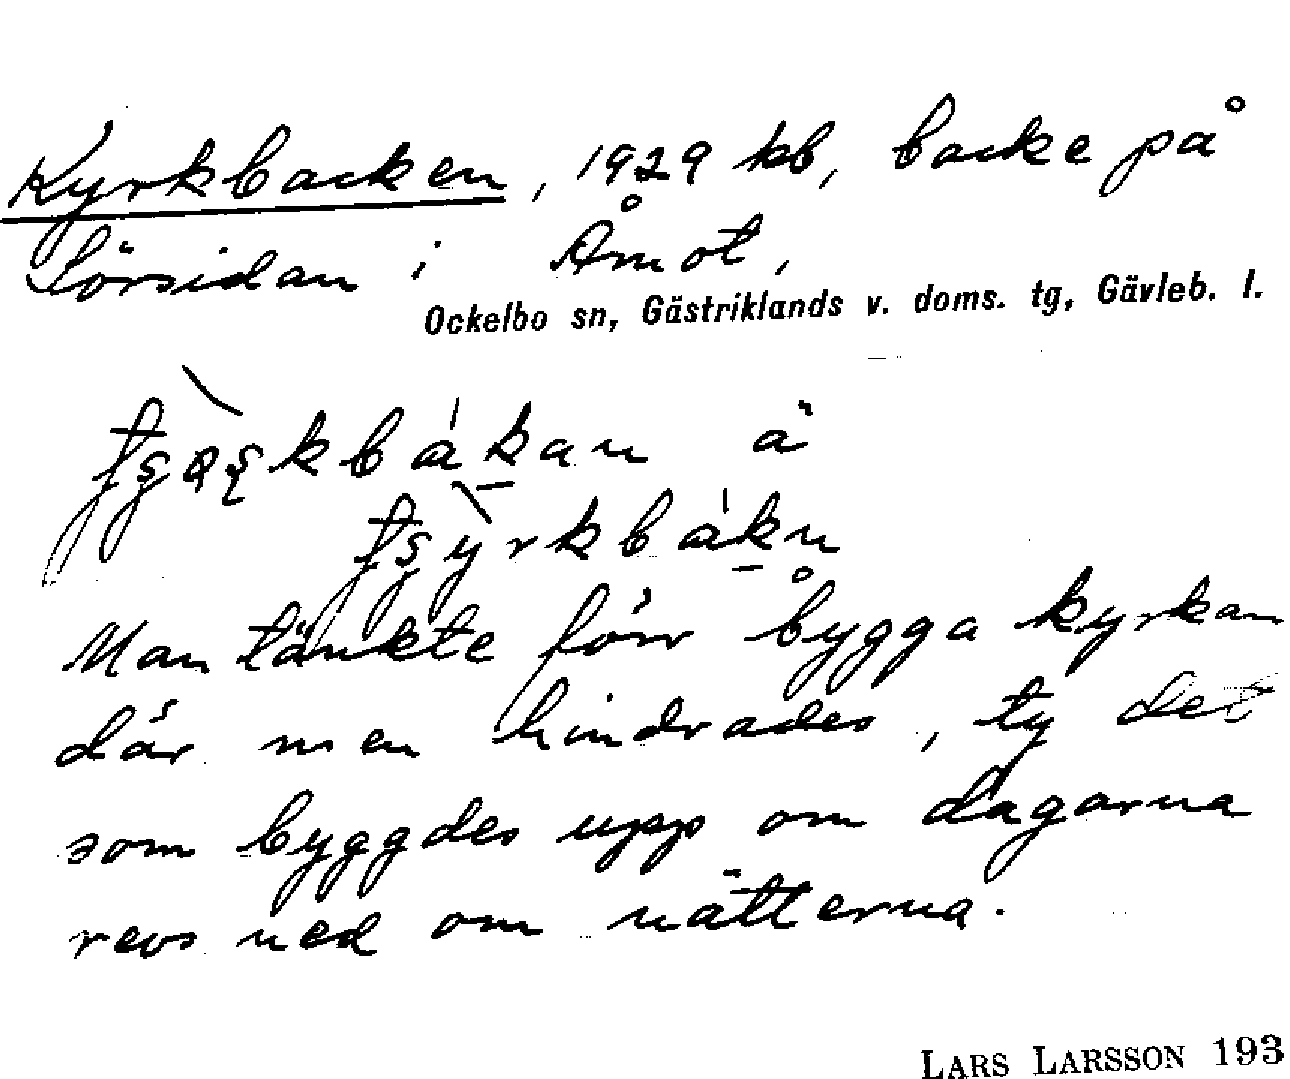 Kyrkbacken, 1929 kb, backe på
Sörsidan i Åmot,
Ockelbo sn, Gästriklands v. doms. tg, Gävleb. l.
ä
Man tänkte förr bygga kyrkan
där men hindrades, ty det
som byggdes upp om dagarna
revs ned om nätterna.
LARS LARSSON 193